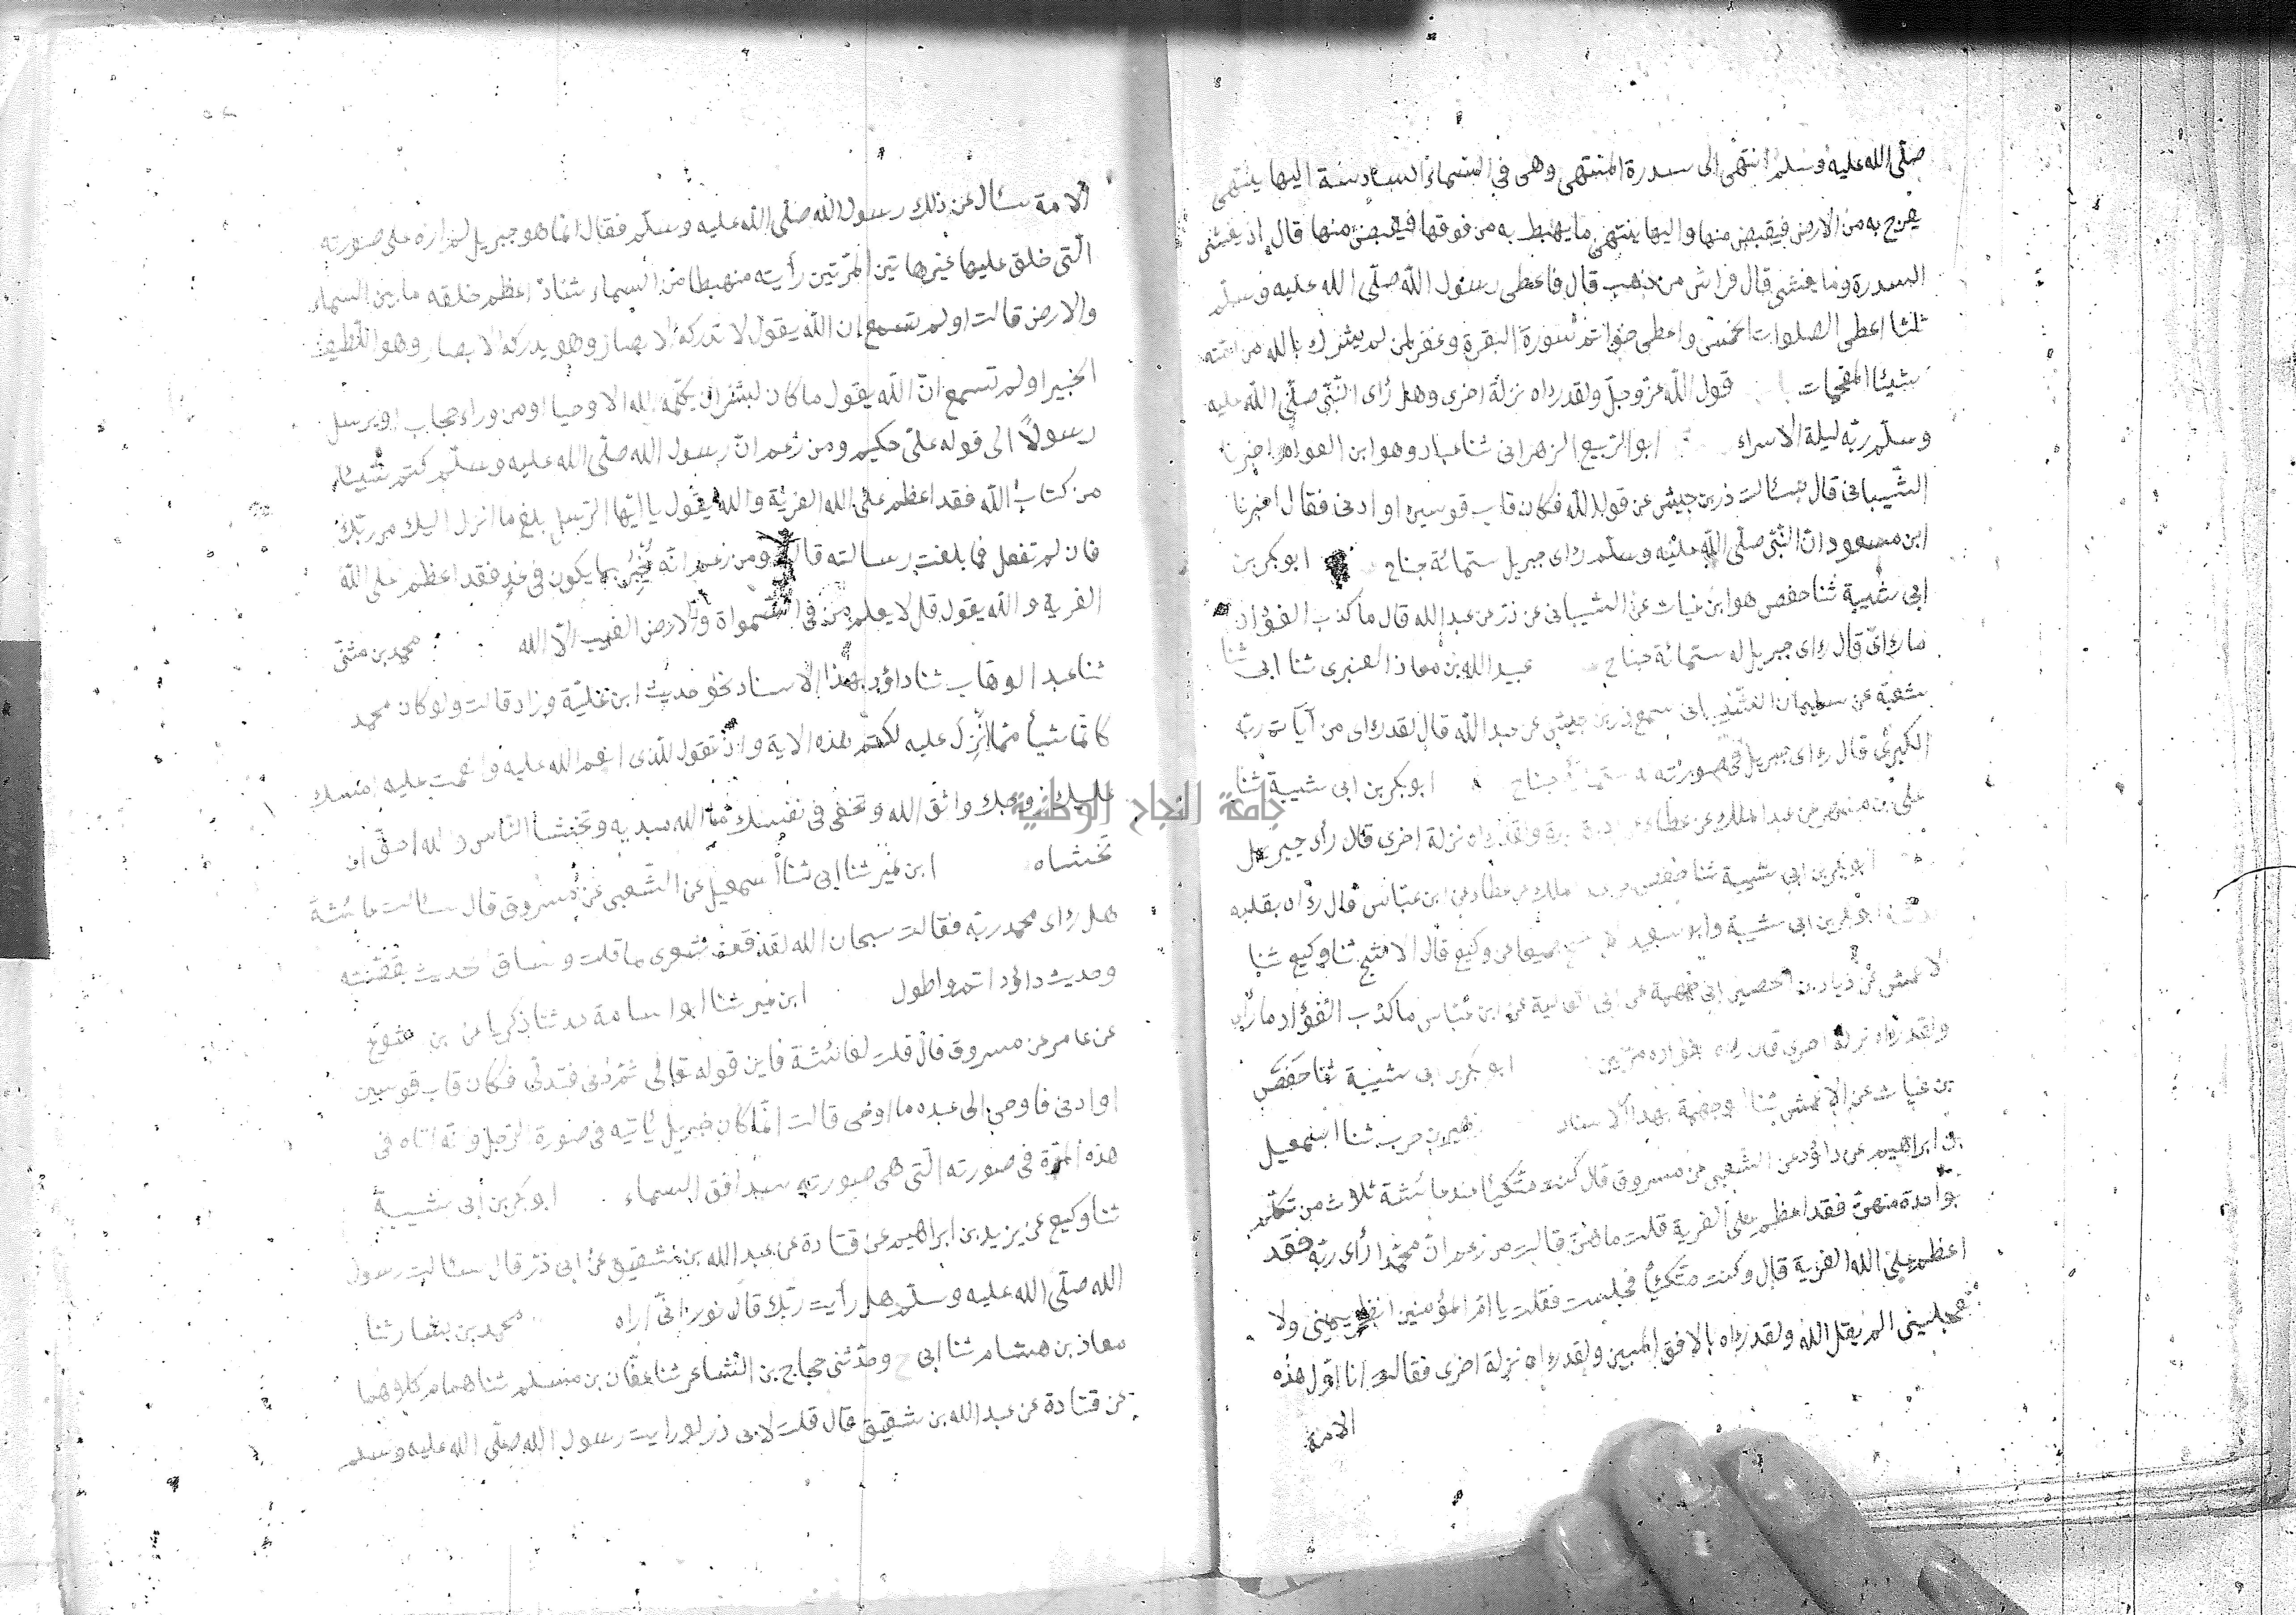 صلى الله عليه وسلم انتهى الى سدرة المنتهى وهى في السماء السادسة اليها ينتهى
يعرج به من الارض فيقبض منها واليها ينتهى ما يهبط به من فوقها فيقبض منها قال اذ يغشى
السدرة وما يغشى قال فراش من ذهب قال فاعطى رسول الله صلى الله عليه وسلم
ثلثا اعطى الصلوات الخمس واعطى خواتم سورة البقرة وغفر لمن لم يشرك بالله من امته
شيئا المقحمات قول الله عز وجل ولقد راه نزلة اخرى وهل رأى النبى صلى الله عليه
وسلم ربه ليلة الاسراء ابو الربيع الزهرانى ثنا عباد وهو ابن العوام اخبرنا
الشيبانى قال سئالت ذر بن حبيش عن قول الله فكان قاب قوسين او ادنى فقال اخبرنا
ابن مسعود ان النبى صلى الله عليه وسلم رأى جبريل ستمائة جناح ابو بكر بن
ابى شيبة ثنا حفص هو ابن غياث عن الشيبانى عن ذر عن عبد الله قال ما كذب الفؤاد
ما رأى قال رأى جبريل له ستمائة جناح عبيد الله بن معاذ العنبرى ثنا ابى ثنا
شعبة عن سليمان سمع ذر بن حبيش عن عبد الله قال لقد رأى من آيات ربه
الكبرى قال رأى جبريل فى صورته له ستمائة جناح ابو بكر بن ابى شيبة ثنا
على بن مسهر عن عبد الملك عن عطاء ولقد راه نزلة اخرى قال رأى جبريل
ابو بكر بن ابى شيبة ثنا حفص الملك عن عطاء عن ابن عباس قال راه بقلبه
ابو بكر بن ابى شيبة وابو سعيد جميعا عن وكيع قال الاشج ثنا وكيع ثنا
الاعمش عن زياد بن الحصين ابى جهمة عن ابى العالية عن ابن عباس ما كذب الفؤاد ما رأى
ولقد راه نزلة اخرى قال راه بفؤاده مرتين ابو بكر بن ابى شيبة ثنا حفص
بن غياث عن الاعمش ثنا ابو جهمة بهذا الاسناد زهير بن حرب ثنا اسمعيل
بن ابراهيم عن داؤد عن الشعبى عن مسروق قال كنت متكئا عند عائشة ثلاث من تكلم
بواحدة منهن فقد اعظم على الفرية قلت ما هن قالت من زعم ان محمدا رأى ربه فقد
اعظم على الله الفرية قال وكنت متكئا فجلست فقلت يا ام المؤمنين انظرينى ولا
تعجلينى الم يقل الله ولقد راه بالافق المبين ولقد راه نزلة اخرى فقالت انا اول هذه
الامة
الامة سئال عن ذلك رسول الله صلى الله عليه وسلم فقال انما هو جبريل لم اره على صورته
التى خلق عليها غير هاتين المرتين رأيته منهبطا من السماء سادّا عظم خلقه ما بين السماء
والارض قالت او لم تسمع ان الله يقول لا تدركه الابصار وهو يدرك الابصار وهو اللطيف
الخبير اولم تسمع ان الله يقول ما كان لبشر ان يكلمه الله الا وحيا او من وراء حجاب او يرسل
رسولا الى قوله على حكيم ومن زعم ان رسول الله صلى الله عليه وسلم كتم شيئا
من كتاب الله فقد اعظم على الله الفرية والله يقول يا ايها الرسول بلغ ما انزل اليك من ربك
فان لم تفعل فما بلغت رسالته قالت ومن زعم انه يخبر بما يكون فى غد فقد اعظم على الله
الفرية والله يقول قل لا يعلم من فى السمواة والارض الغيب الا الله محمد بن مثنى
ثنا عبد الوهاب ثنا داؤد بهذا الاسناد نحو حديث ابن علية وزاد قالت ولو كان محمد
كاتما شيأ مما انزل عليه لكتم هذه الاية واذ تقول للذى انعم الله عليه وانعمت عليه امسك
عليك زوجك واتق الله وتخفى فى نفسك ما الله مبديه وتخشا الناس والله احق ان
تخشاه ابن نمير ثنا ابى ثنا اسمعيل عن الشعبى عن مسروق قال سئالت عائشة
هل رأى محمد ربه فقالت سبحان الله لقد قف شعرى ما قلت وساق الحديث بقصته
وحديث داؤد اتم واطول ابن نمير ثنا ابو اسامة ثنا زكريا عن بن اشوع
عن عامر عن مسروق قال قلت لعائشة فاين قوله تعالى ثم دنى فتدلى فكان قاب قوسين
او ادنى فاوحى الى عبده ما اوحى قالت انما كان جبريل يأتيه فى صورة الرجل وانه اتاه فى
هذه المرة فى صورته التى هى صورته سد افق السماء ابو بكر بن ابى شيبة
ثنا وكيع عن يزيد بن ابراهيم عن قتادة عن عبد الله بن شقيق عن ابى ذر قال سئالت رسول
الله صلى الله عليه وسلم هل رأيت ربك قال نور انى اراه محمد بن بشار ثنا
معاذ بن هشام ثنا ابى ح وحدثنى حجاج بن الشاعر ثنا عفان بن مسلم ثنا همام كلاهما
عن قتادة عن عبد الله بن شقيق قال قلت لابى ذر لو رايت رسول الله صلى الله عليه وسلم
جامعة النجاح الوطنية